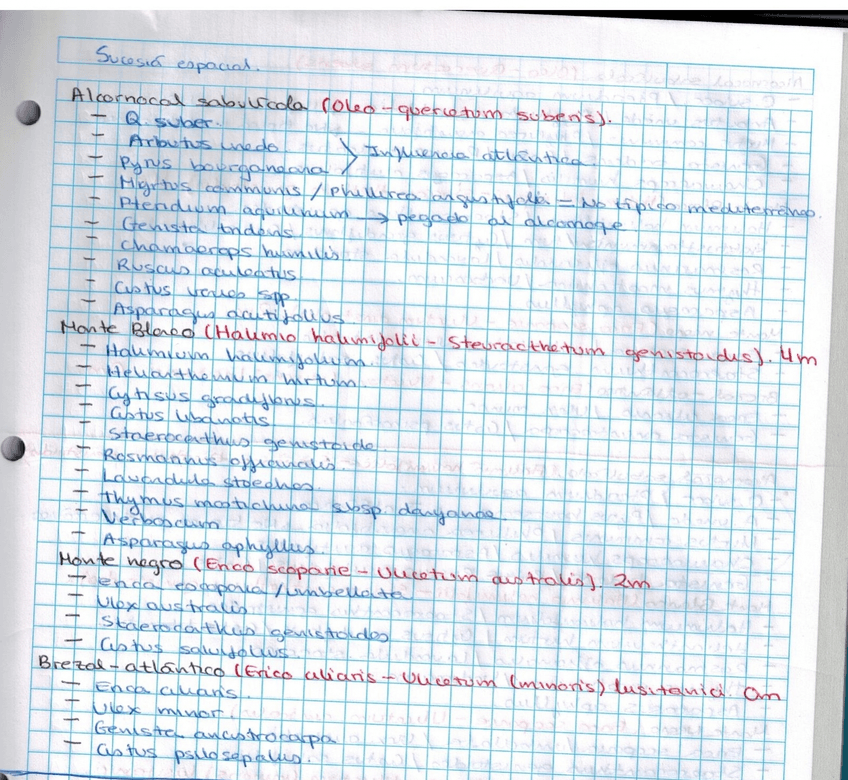 Sucesió espacial.
Alcornocal sabulícola (Oleo-quercetum suberis).
- Q. suber.
- Arbutus unedo
- Pyrus bourgaeana > Influencia atlántica
- Myrtus communis / Phillirea angustifolia - No típico mediterráneo.
- Pteridium aquilinum → pegado al alcornoque
- Genista tridens
- Chamaerops humilis.
- Ruscus aculeatus
- Cistus varios spp
- Asparagus acutifolius.
Monte Blanco (Halimio halimifolii - Stauracthetum genistoidis). 4m
- Halimium halimifolium.
- Helianthemum hirtum.
- Cytisus grandiflorus.
- Cistus libanotis
- Staeracanthus genistoide.
- Rosmarinus officinalis.
- Lavandula stoechas.
- Thymus mastichina subsp. donyanae
- Verbascum
- Asparagus aphyllus.
Monte negro (Erico scoparie - Ulicetum australis). 2m
- Erica scoparia / umbellata
- Ulex australis
- Staeracathus genistoides
- Cistus salvifolius.
Brezal-atlántico (Erico ciliaris - Ulicetum (minoris) lusitanici. 0m
- Erica ciliaris.
- Ulex minor.
- Genista ancistrocarpa
- Cistus psilosepalus.